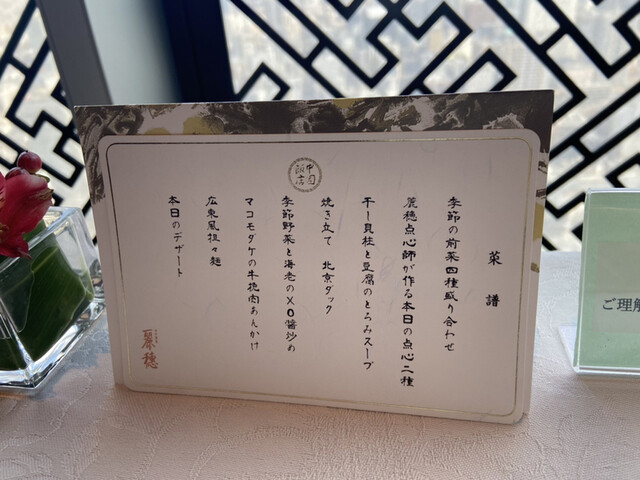 中国
飯店
菜譜
季節の前菜四種盛り合わせ
麗穂点心師が作る本日の点心二種
干し貝柱と豆腐のとろみスープ
焼き立て 北京ダック
季節野菜と海老のXO醤炒め
マコモダケの牛挽肉あんかけ
広東風担々麺
本日のデザート
麗穂
ご理解